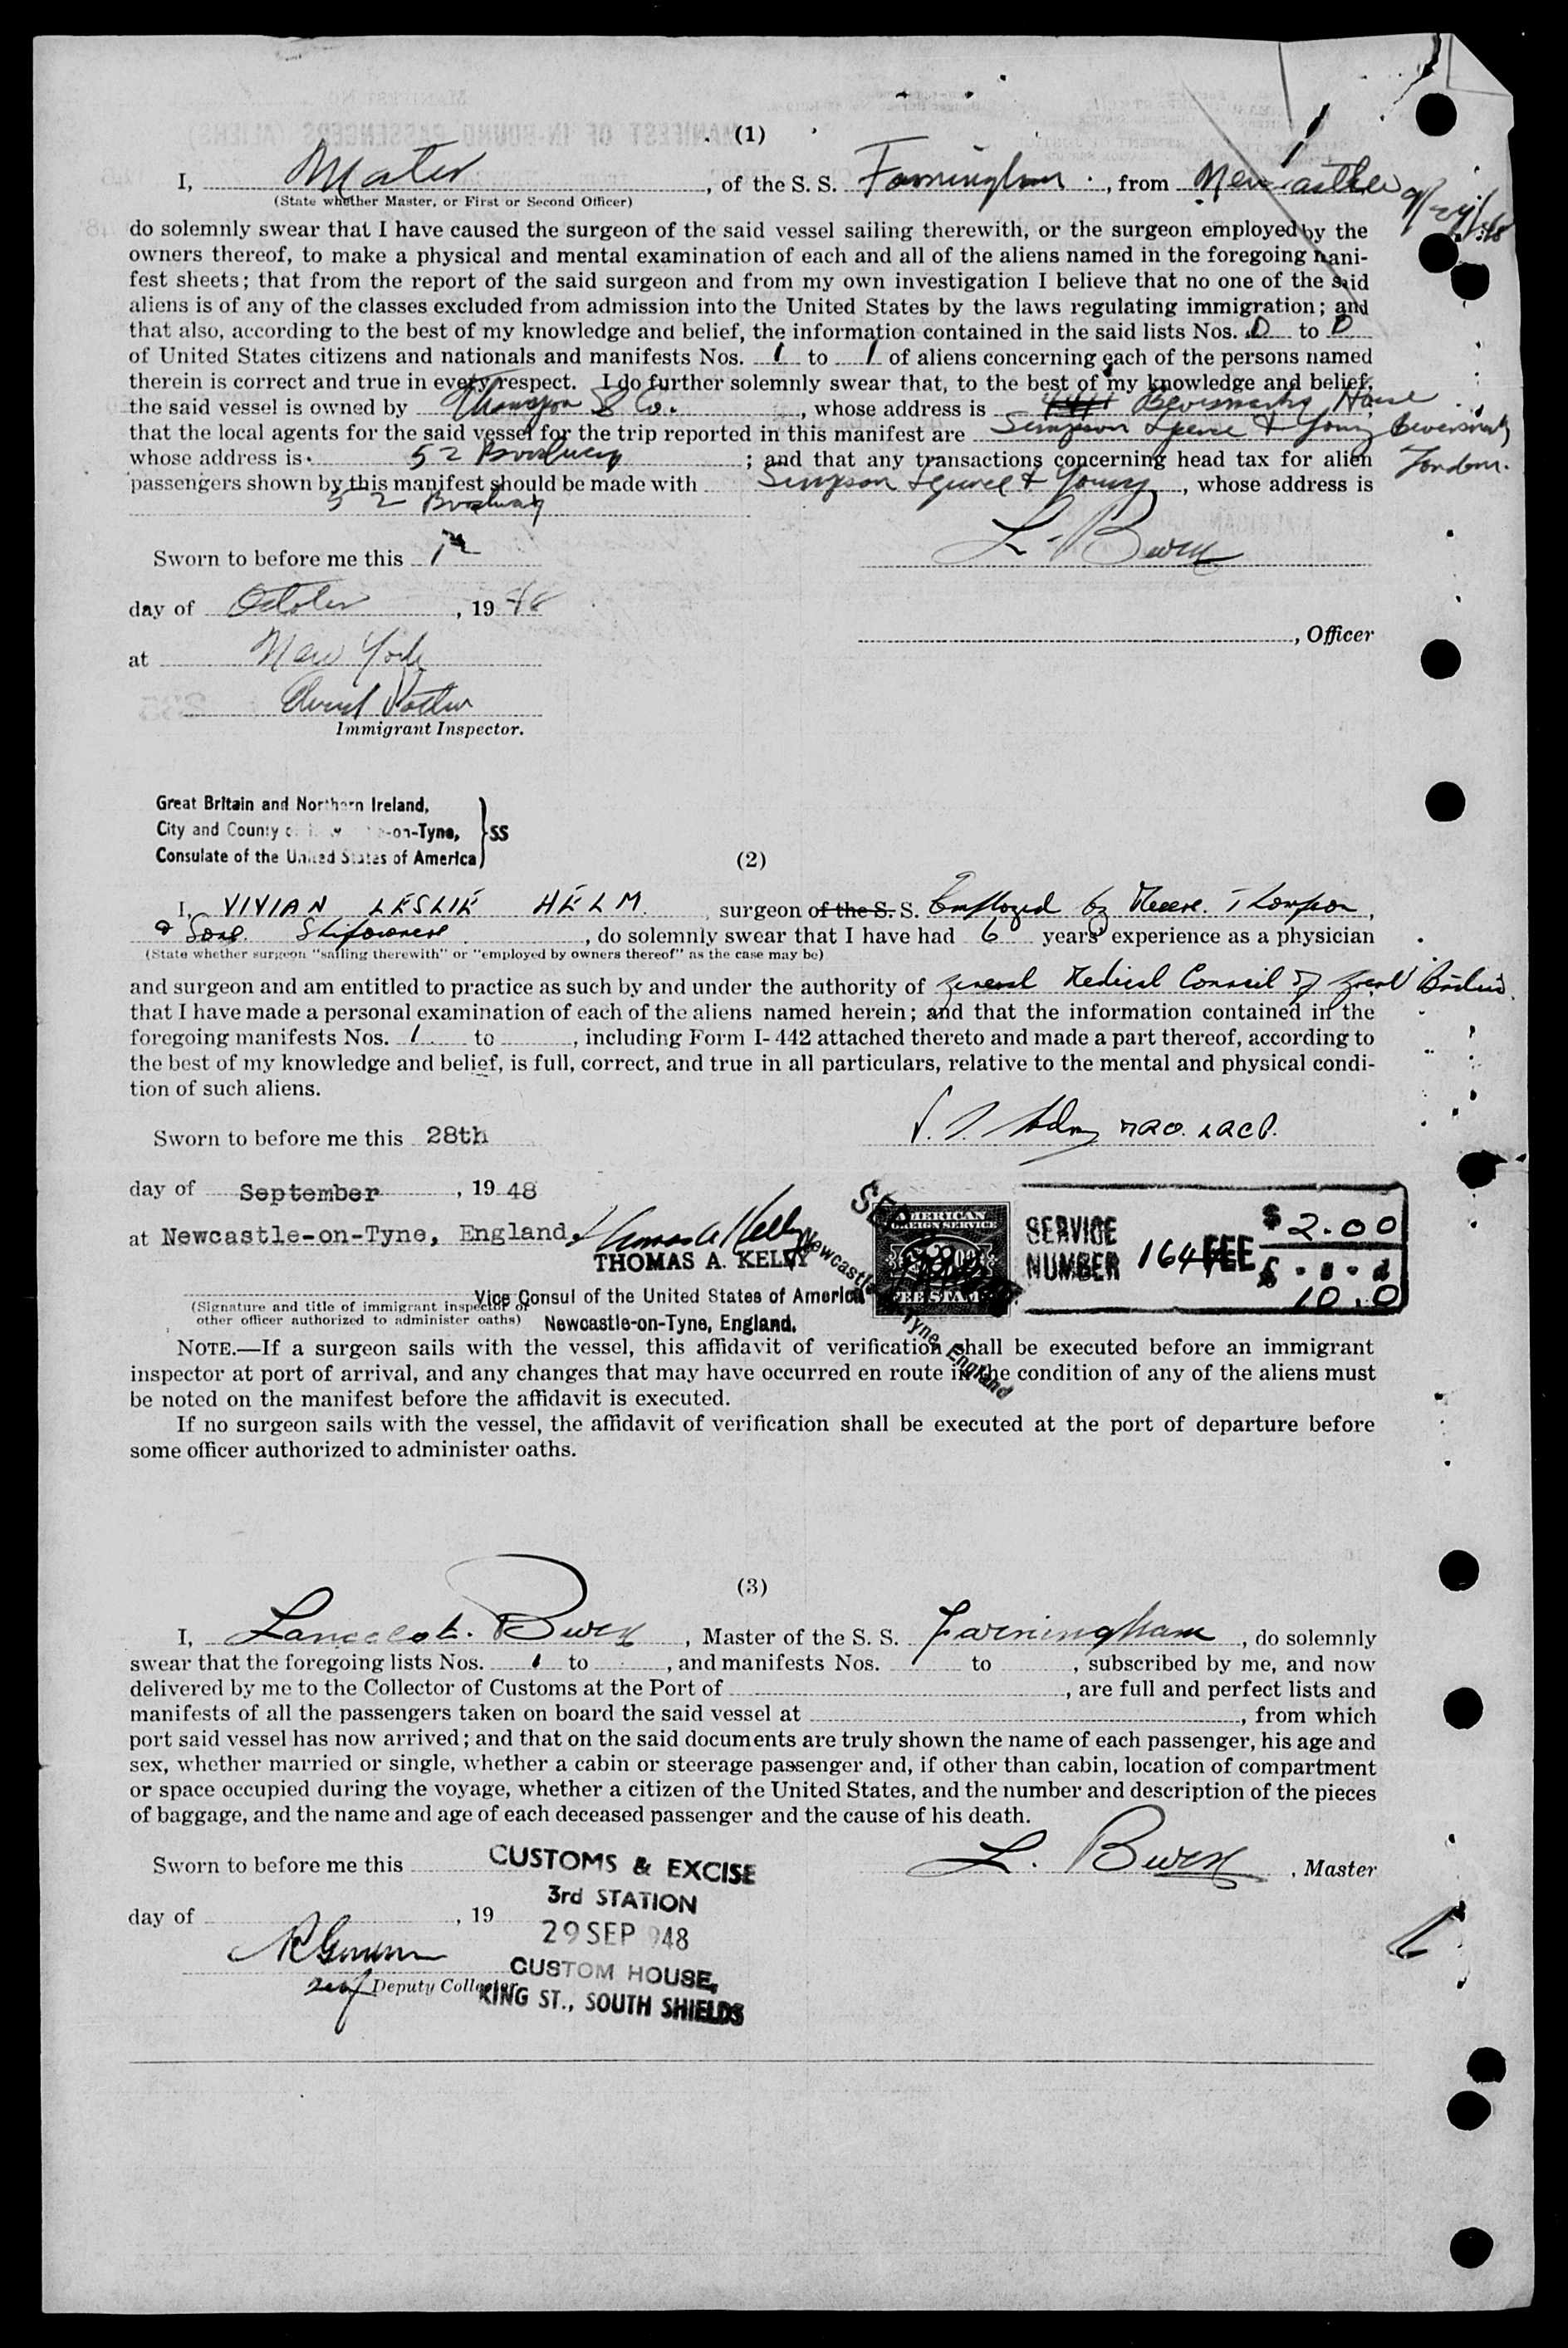 (1)
I, Master, of the S. S. Farningham, from Newcastle 9/29/48
(State whether Master, or First or Second Officer)
do solemnly swear that I have caused the surgeon of the said vessel sailing therewith, or the surgeon employed by the
owners thereof, to make a physical and mental examination of each and all of the aliens named in the foregoing mani-
fest sheets; that from the report of the said surgeon and from my own investigation I believe that no one of the said
aliens is of any of the classes excluded from admission into the United States by the laws regulating immigration; and
that also, according to the best of my knowledge and belief, the information contained in the said lists Nos. 0 to 0
of United States citizens and nationals and manifests Nos. 1 to 1 of aliens concerning each of the persons named
therein is correct and true in every respect. I do further solemnly swear that, to the best of my knowledge and belief,
the said vessel is owned by Thompson & Co., whose address is Bevismarks House
that the local agents for the said vessel for the trip reported in this manifest are Simpson Spence & Young
whose address is 52 Broadway; and that any transactions concerning head tax for alien London.
passengers shown by this manifest should be made with Simpson Spence & Young, whose address is
52 Broadway
Sworn to before me this 1st
day of October, 1948
at New York
, Officer
Immigrant Inspector.
Great Britain and Northern Ireland,
City and County of -on-Tyne, } SS
Consulate of the United States of America
(2)
I, VIVIAN LESLIE HELM, surgeon of the S. S. Employed by Messrs. Thompson,
& Sons. Shipowners, do solemnly swear that I have had 6 years' experience as a physician
(State whether surgeon "sailing therewith" or "employed by owners thereof" as the case may be)
and surgeon and am entitled to practice as such by and under the authority of General Medical Council of Great Britain
that I have made a personal examination of each of the aliens named herein; and that the information contained in the
foregoing manifests Nos. 1 to , including Form I-442 attached thereto and made a part thereof, according to
the best of my knowledge and belief, is full, correct, and true in all particulars, relative to the mental and physical condi-
tion of such aliens.
Sworn to before me this 28th
day of September, 1948
at Newcastle-on-Tyne, England. Thomas A. Kelly
THOMAS A. KELLY
Vice Consul of the United States of America
Newcastle-on-Tyne, England.
(Signature and title of immigrant inspector or
other officer authorized to administer oaths)
AMERICAN
FOREIGN SERVICE
FEE STAMP
SERVICE
NUMBER 164 FEE
$ 2.00
£ s d
10.0
NOTE.—If a surgeon sails with the vessel, this affidavit of verification shall be executed before an immigrant
inspector at port of arrival, and any changes that may have occurred en route in the condition of any of the aliens must
be noted on the manifest before the affidavit is executed.
If no surgeon sails with the vessel, the affidavit of verification shall be executed at the port of departure before
some officer authorized to administer oaths.
(3)
I, Lancelot, Master of the S. S. Farningham, do solemnly
swear that the foregoing lists Nos. 1 to , and manifests Nos. to , subscribed by me, and now
delivered by me to the Collector of Customs at the Port of , are full and perfect lists and
manifests of all the passengers taken on board the said vessel at , from which
port said vessel has now arrived; and that on the said documents are truly shown the name of each passenger, his age and
sex, whether married or single, whether a cabin or steerage passenger and, if other than cabin, location of compartment
or space occupied during the voyage, whether a citizen of the United States, and the number and description of the pieces
of baggage, and the name and age of each deceased passenger and the cause of his death.
Sworn to before me this
, Master
day of , 19
Deputy Collector.
CUSTOMS & EXCISE
3rd STATION
29 SEP 948
CUSTOM HOUSE,
KING ST., SOUTH SHIELDS